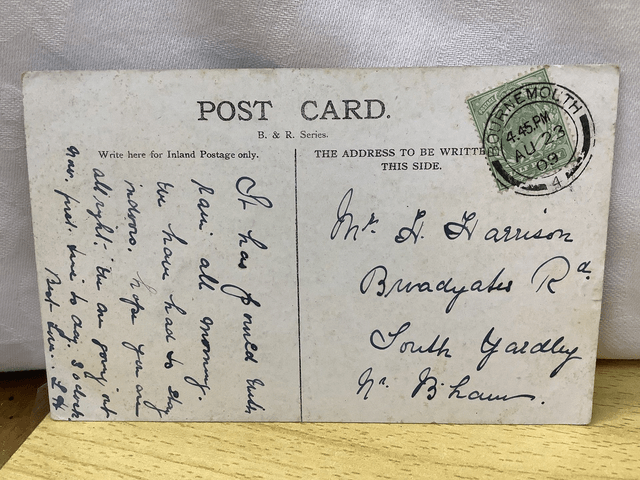 POST CARD.
B. & R. Series.
Write here for Inland Postage only.
THE ADDRESS TO BE WRITTE
THIS SIDE.
BOURNEMOUTH
4.45 PM
AU 23
09
4
It has poured with
rain all morning.
We have had to stay
indoors. hope you are
allright. We are going out
now first time to day 3 oclock
Best Love. L H
Mr. H. Harrison
Broadyates Rd.
South Yardley
Nr. B'ham.